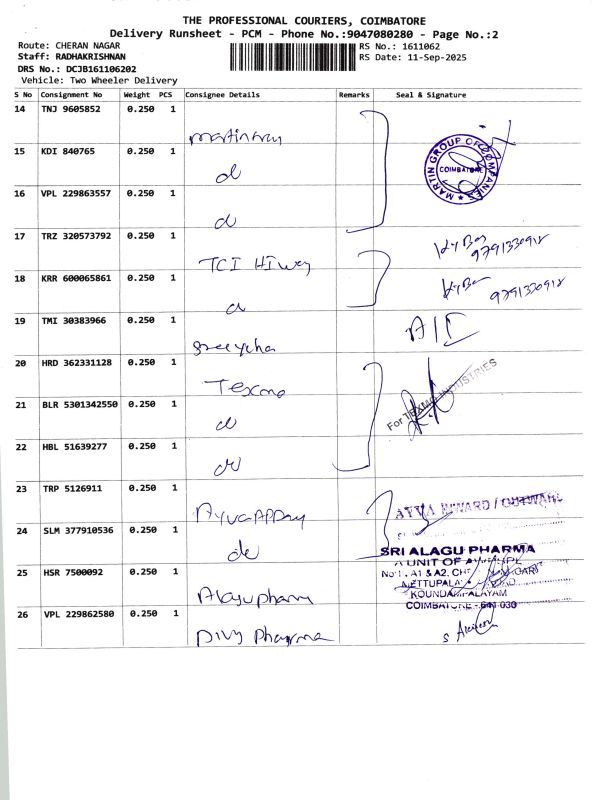 THE PROFESSIONAL COURIERS, COIMBATORE
Delivery Runsheet - PCM - Phone No.:9047080280 - Page No.:2
Route: CHERAN NAGAR
RS No.: 1611062
Staff: RADHAKRISHNAN
RS Date: 11-Sep-2025
DRS No.: DCJB161106202
Vehicle: Two Wheeler Delivery
S No Consignment No Weight PCS Consignee Details Remarks Seal & Signature
14 TNJ 9605852 0.250 1
MARTIN GROUP OF COMPANIES
COIMBATORE
15 KDI 840765 0.250 1
d
16 VPL 229863557 0.250 1
d
17 TRZ 320573792 0.250 1
TCI Hiway
9791330918
18 KRR 600065861 0.250 1
d
9791330918
19 TMI 30383966 0.250 1
20 HRD 362331128 0.250 1
Texmo
For TEXMO INDUSTRIES
21 BLR 5301342550 0.250 1
d
22 HBL 51639277 0.250 1
do
23 TRP 5126911 0.250 1
AYVA INWARD / OUTWARD
24 SLM 377910536 0.250 1
do
SRI ALAGU PHARMA
A UNIT OF
25 HSR 7500092 0.250 1
No 1, A1 & A2,
KOUNDAMPALAYAM
COIMBATORE - 641 030
Alagu pharm
26 VPL 229862580 0.250 1
Divy Pharma